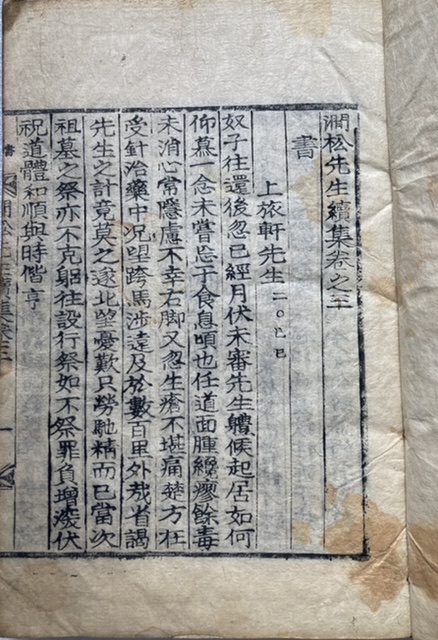 澗松先生續集卷之三
書
上旅軒先生 二〇己巳
奴子往還後忽已經月伏未審先生軆候起居如何
仰慕一念未嘗忘于食息頃也任道面腫纔瘳餘毒
未消心常隱慮不幸右脚又忽生瘡不堪痛楚方在
受針治藥中況望跨馬涉遠及於數百里外哉省謁
先生之計竟莫之遂北望憂歎只勞馳精而已當次
祖墓之祭亦不克躬往設行祭如不祭罪負增深伏
祝道體和順與時偕亨